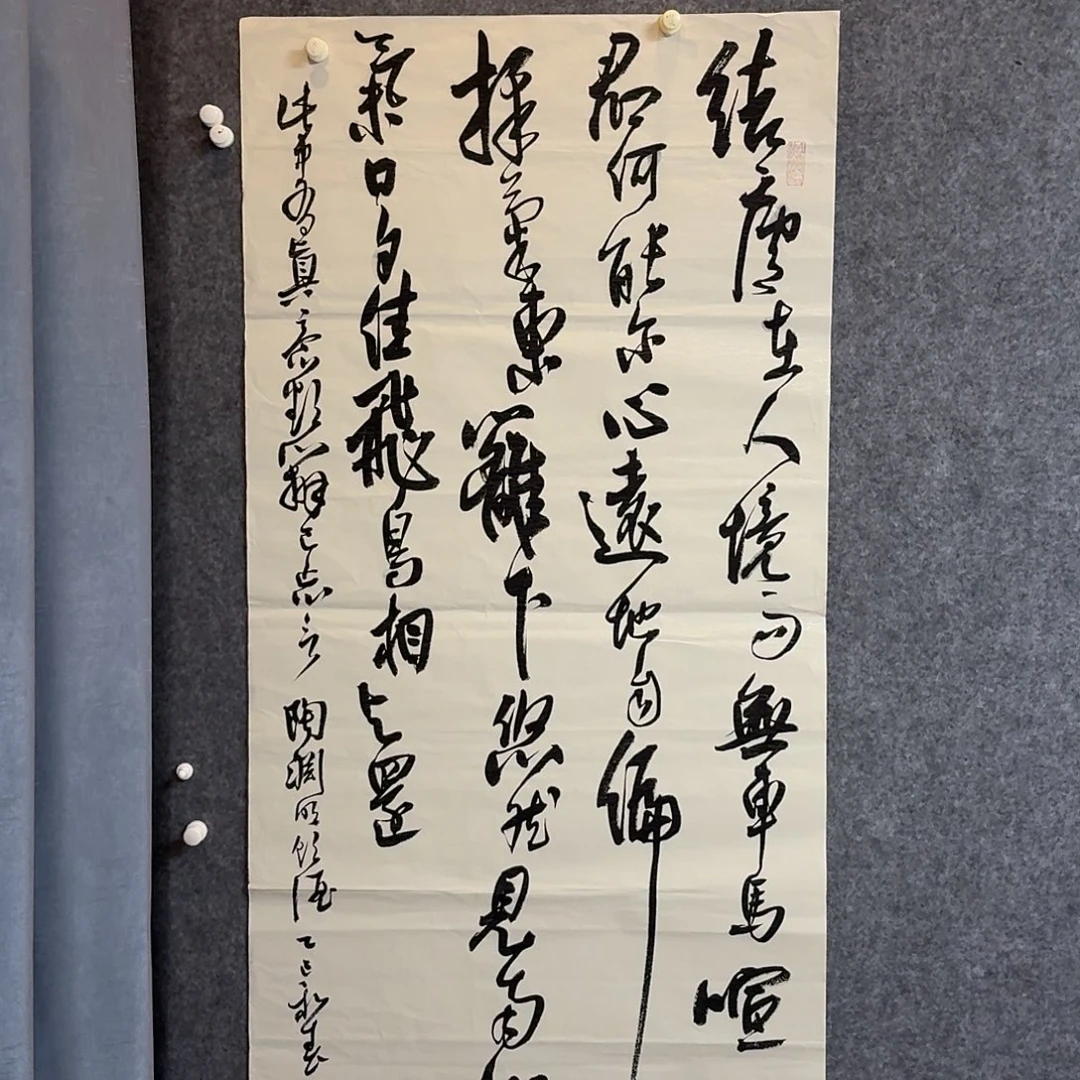 結廬在人境而無車馬喧
君何能尔心遠地自偏
採菊東籬下悠然見南
氣日夕佳飛鳥相与還
此中有真意欲辨已忘言 陶淵明飲酒 乙巳春